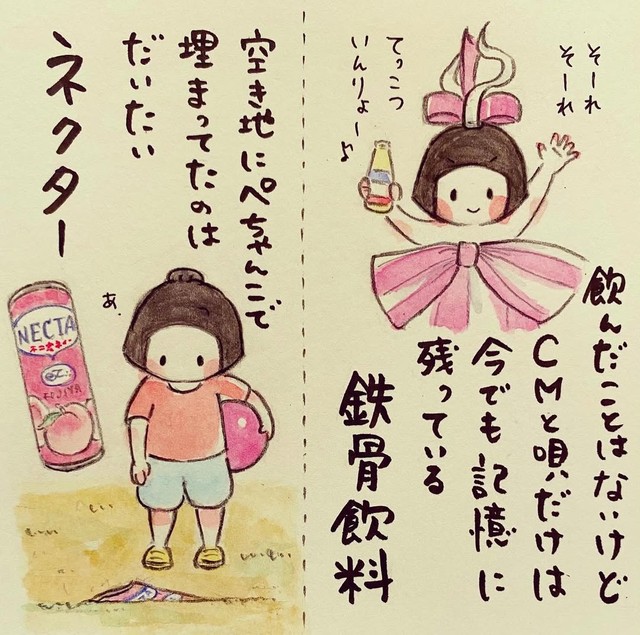 そーれ
そーれ
てっこつ
いんりょー♪
飲んだことはないけど
CMと唄だけは
今でも記憶に
残っている
鉄骨飲料
空き地にぺちゃんこで
埋まってたのは
だいたい
ネクター
あ、
NECTA